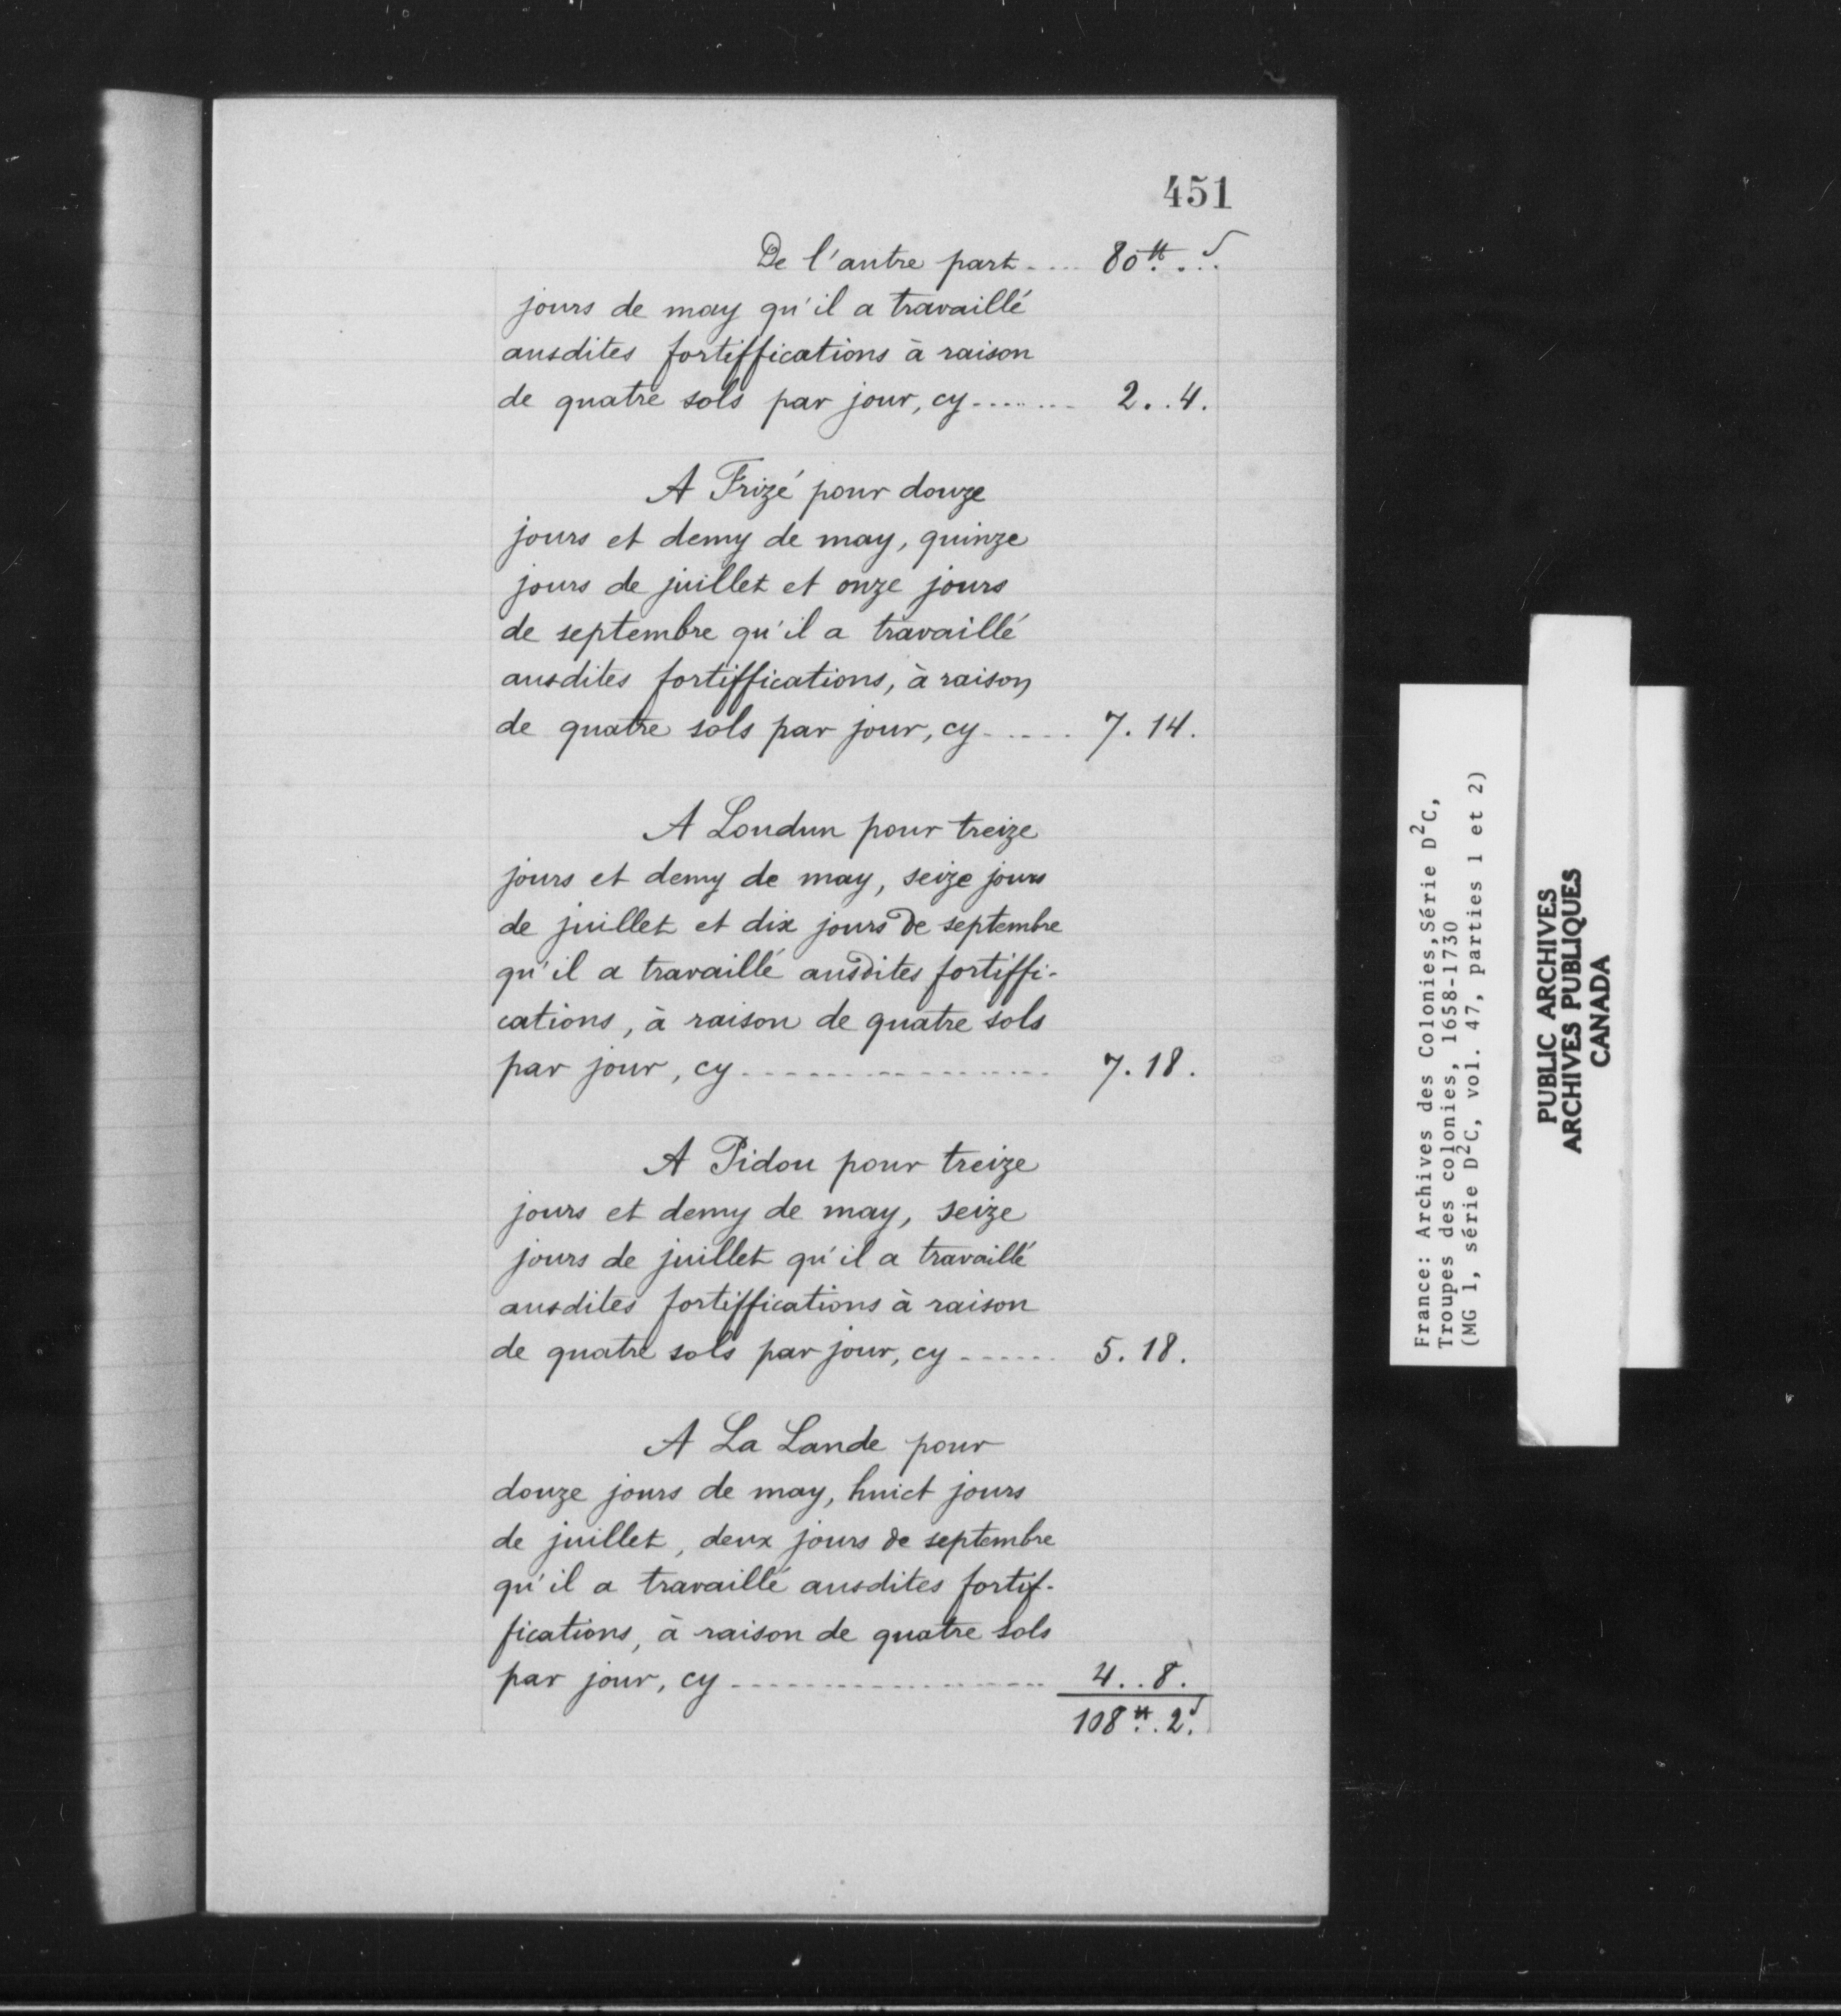 451
De l'autre part .... 80₶. ... s
jours de may qu'il a travaillé
ausdites fortiffications à raison
de quatre sols par jour, cy ........ 2..4.
A Frizé pour douze
jours et demy de may, quinze
jours de juillet et onze jours
de septembre qu'il a travaillé
ausdites fortiffications, à raison
de quatre sols par jour, cy ...... 7.14.
A Loudun pour treize
jours et demy de may, seize jours
de juillet et dix jours de septembre
qu'il a travaillé ausdites fortiffi-
cations, à raison de quatre sols
par jour, cy .................. 7.18.
A Pidou pour treize
jours et demy de may, seize
jours de juillet qu'il a travaillé
ausdites fortiffications à raison
de quatre sols par jour, cy ...... 5.18.
A La Lande pour
douze jours de may, huict jours
de juillet, deux jours de septembre
qu'il a travaillé ausdites fortif-
fications, à raison de quatre sols
par jour, cy .................. 4..8.
108₶..2.s
France: Archives des Colonies,Série D²C,
Troupes des colonies, 1658-1730
(MG 1, série D²C, vol. 47, parties 1 et 2)
PUBLIC ARCHIVES
ARCHIVES PUBLIQUES
CANADA